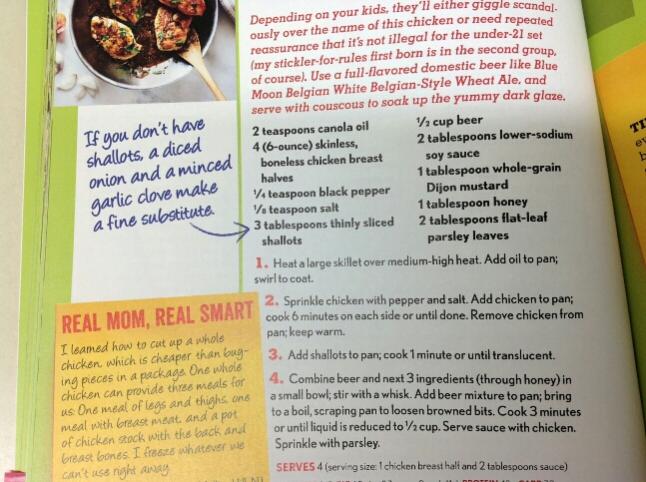 Depending on your kids, they'll either giggle scandal-
ously over the name of this chicken or need repeated
reassurance that it's not illegal for the under-21 set
(my stickler-for-rules first born is in the second group,
of course). Use a full-flavored domestic beer like Blue
Moon Belgian White Belgian-Style Wheat Ale, and
serve with couscous to soak up the yummy dark glaze.
If you don't have
shallots, a diced
onion and a minced
garlic clove make
a fine substitute.
2 teaspoons canola oil
4 (6-ounce) skinless,
boneless chicken breast
halves
1/4 teaspoon black pepper
1/8 teaspoon salt
3 tablespoons thinly sliced
shallots
1/2 cup beer
2 tablespoons lower-sodium
soy sauce
1 tablespoon whole-grain
Dijon mustard
1 tablespoon honey
2 tablespoons flat-leaf
parsley leaves
1. Heat a large skillet over medium-high heat. Add oil to pan;
swirl to coat.
2. Sprinkle chicken with pepper and salt. Add chicken to pan;
cook 6 minutes on each side or until done. Remove chicken from
pan; keep warm.
3. Add shallots to pan; cook 1 minute or until translucent.
4. Combine beer and next 3 ingredients (through honey) in
a small bowl; stir with a whisk. Add beer mixture to pan; bring
to a boil, scraping pan to loosen browned bits. Cook 3 minutes
or until liquid is reduced to 1/2 cup. Serve sauce with chicken.
Sprinkle with parsley.
SERVES 4 (serving size: 1 chicken breast half and 2 tablespoons sauce)
REAL MOM, REAL SMART
I learned how to cut up a whole
chicken, which is cheaper than buy-
ing pieces in a package. One whole
chicken can provide three meals for
us: One meal of legs and thighs, one
meal with breast meat, and a pot
of chicken stock with the back and
breast bones. I freeze whatever we
can't use right away.